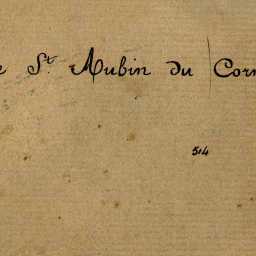 e St. Aubin du Corm
514